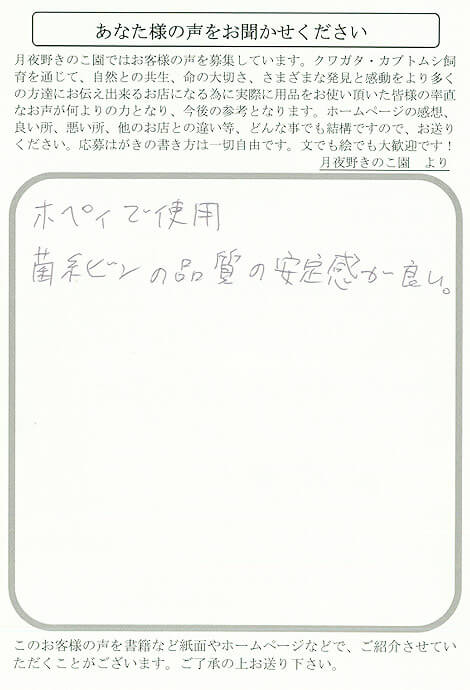 あなた様の声をお聞かせください
月夜野きのこ園ではお客様の声を募集しています。クワガタ・カブトムシ飼
育を通じて、自然との共生、命の大切さ、さまざまな発見と感動をより多く
の方達にお伝え出来るお店になる為に実際に用品をお使い頂いた皆様の率直
なお声が何よりの力となり、今後の参考となります。ホームページの感想、
良い所、悪い所、他のお店との違い等、どんな事でも結構ですので、お送り
ください。応募はがきの書き方は一切自由です。文でも絵でも大歓迎です！
月夜野きのこ園　より
ホペイで使用
菌糸ビンの品質の安定感が良い。
このお客様の声を書籍など紙面やホームページなどで、ご紹介させてい
ただくことがございます。ご了承の上お送り下さい。